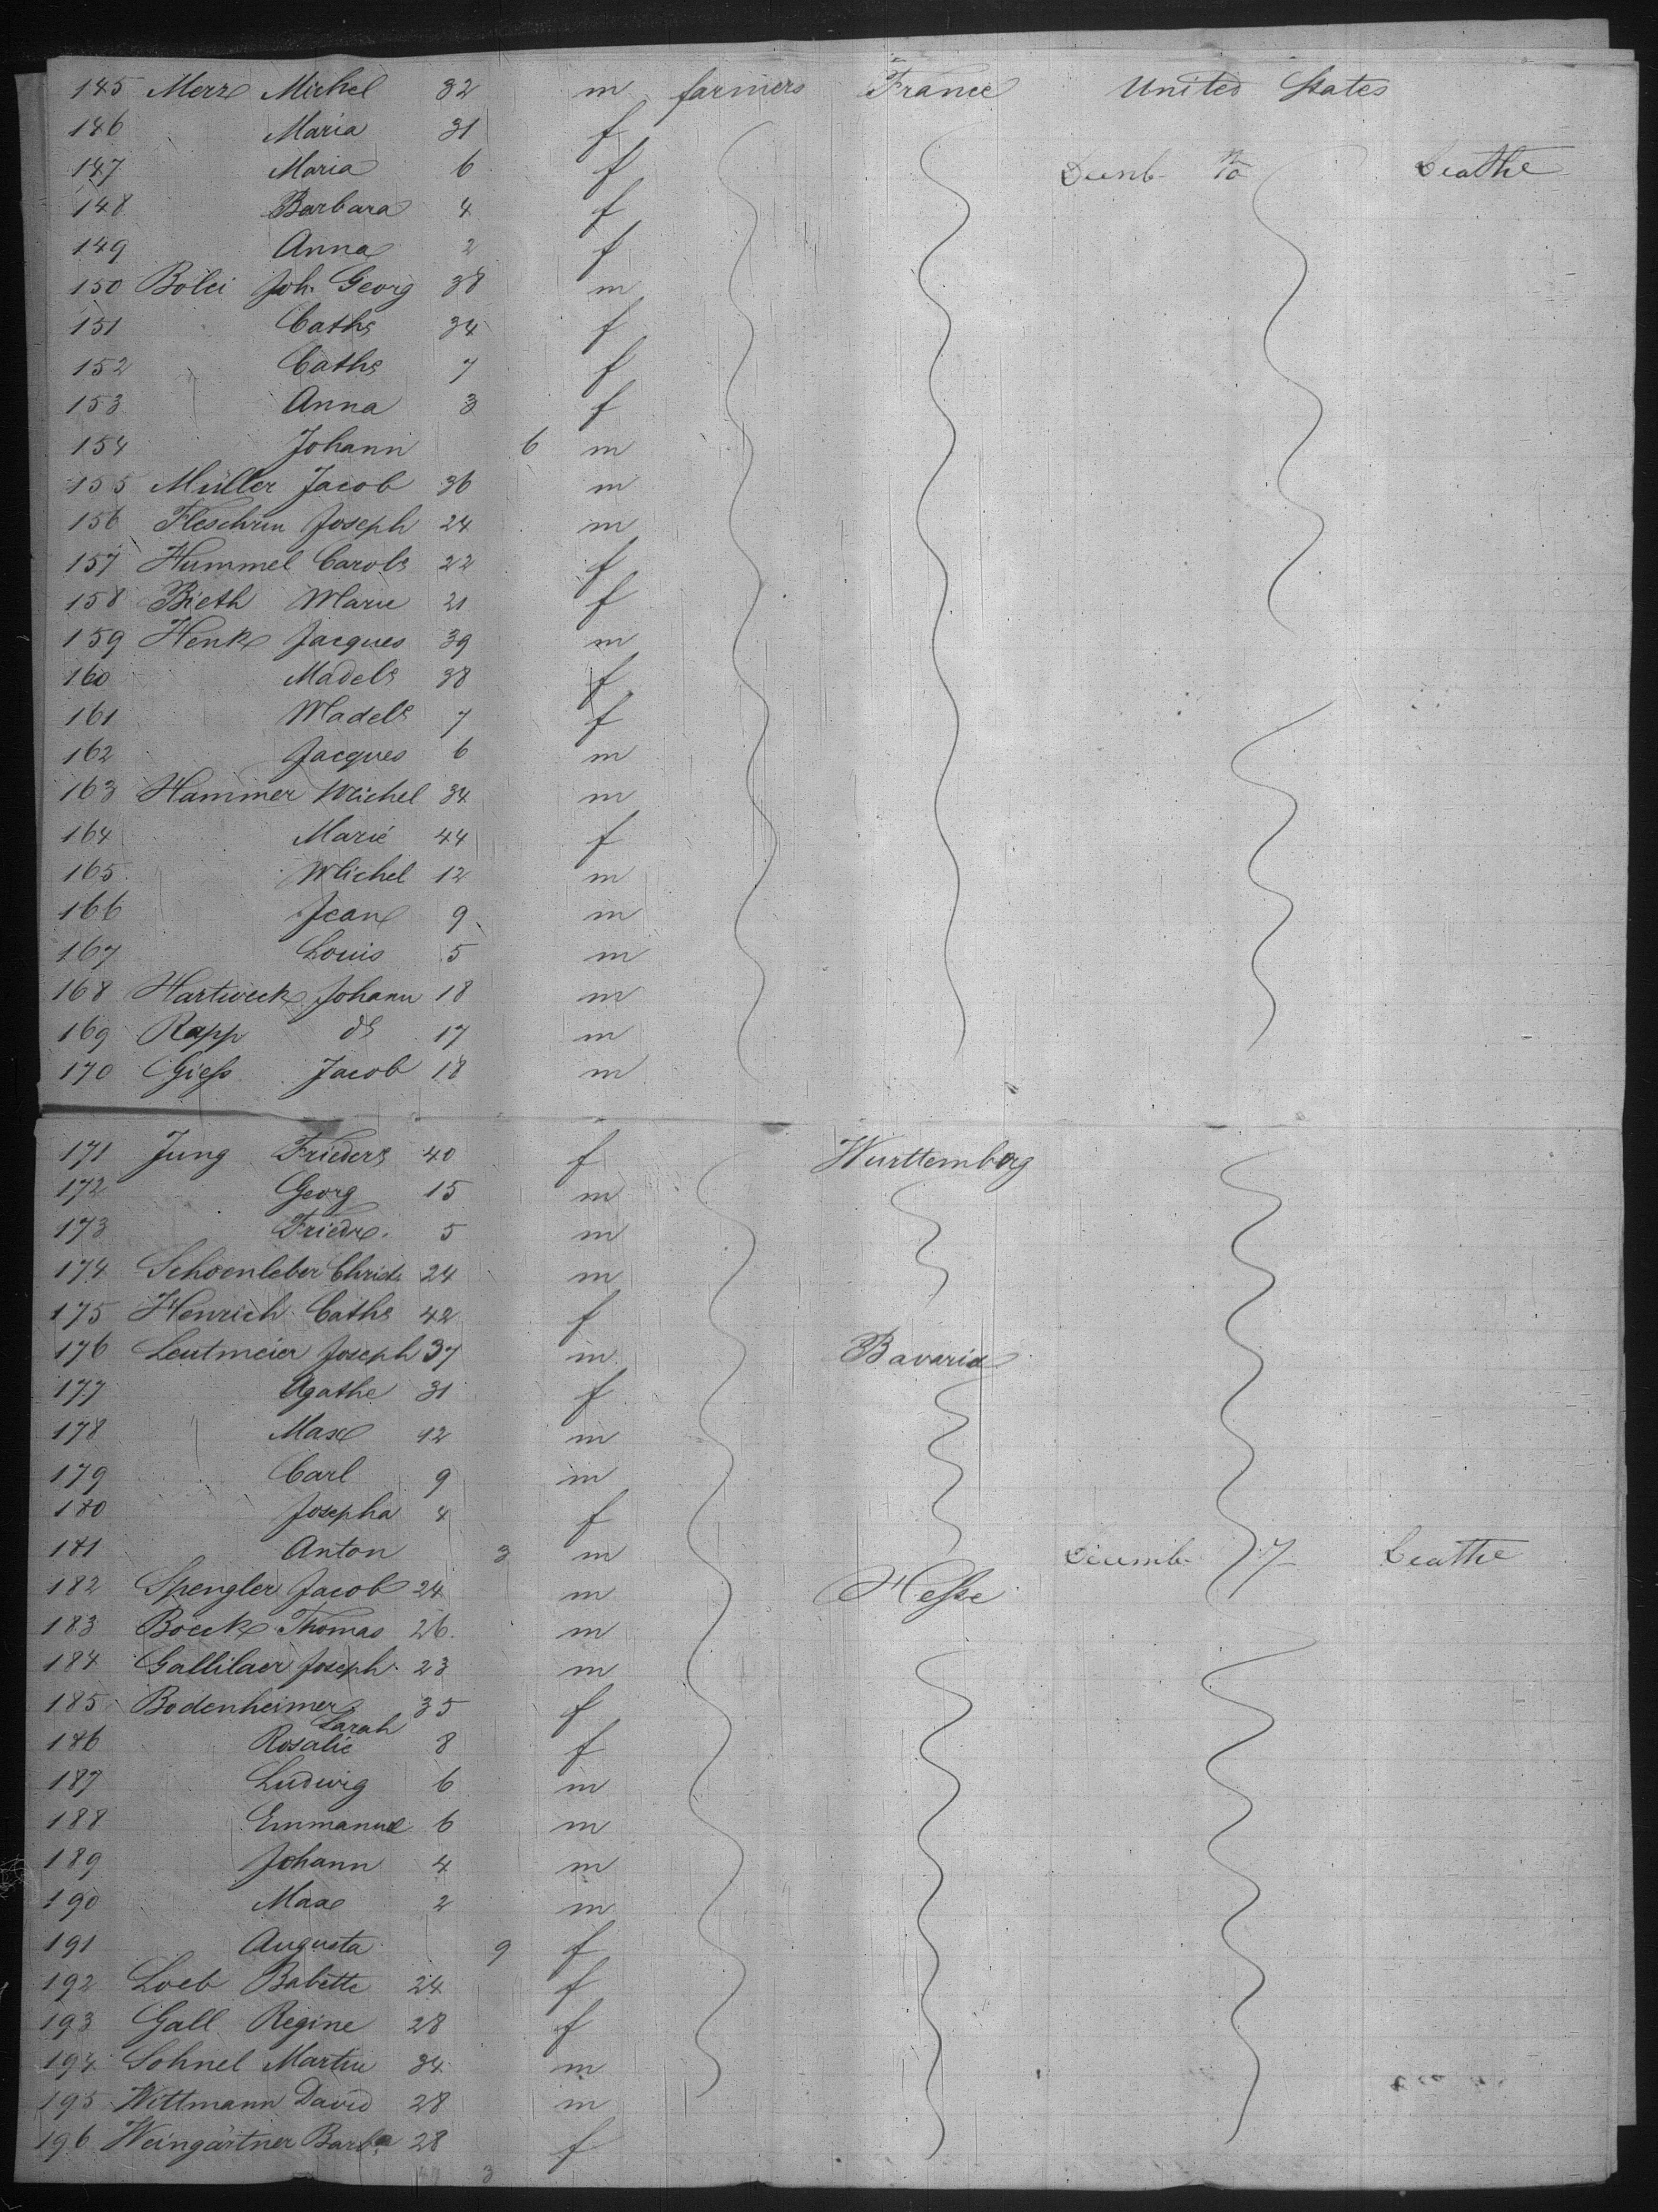 145 Merz Michel 32 m farmers France United States
146 Maria 31 f
147 Maria 6 f Decmb. Deathe
148 Barbara 4 f
149 Anna 2 f
150 Bolei Joh. Georg 38 m
151 Caths 34 f
152 Caths 7 f
153 Anna 3 f
154 Johann 6 m
155 Müller Jacob 36 m
156 Joseph 24 m
157 Hummel Carols 22 f
158 Bieth Marie 21 f
159 Henk Jacques 39 m
160 Madels 38 f
161 Madels 7 f
162 Jacques 6 m
163 Hammer Michel 34 m
164 Marié 44 f
165 Michel 12 m
166 Jean 9 m
167 Louis 5 m
168 Hartweck Johann 18 m
169 Rapp do 17 m
170 Giess Jacob 18 m
171 Jung Frieders 40 f Wurttemberg
172 Georg 15 m
173 Friedr. 5 m
174 Schoenleber Christ. 24 m
175 Henrich Caths 42 f
176 Leutmeier Joseph 37 m Bavaria
177 Agathe 31 f
178 Max 12 m
179 Carl 9 m
180 Josepha 4 f
181 Anton 3 m Decemb. 7 Deathe
182 Spengler Jacob 24 m Hesse
183 Boeck Thomas 26 m
184 Gallilaer Joseph 23 m
185 Bodenheimer Sarah 35 f
186 Rosalie 8 f
187 Ludwig 6 m
188 Emmanuel 6 m
189 Johann 4 m
190 Max 2 m
191 Augusta 9 f
192 Loeb Babette 24 f
193 Gall Regine 28 f
194 Sohnel Martin 34 m
195 Wittmann David 28 m
196 Weingärtner Barba 28 f
3